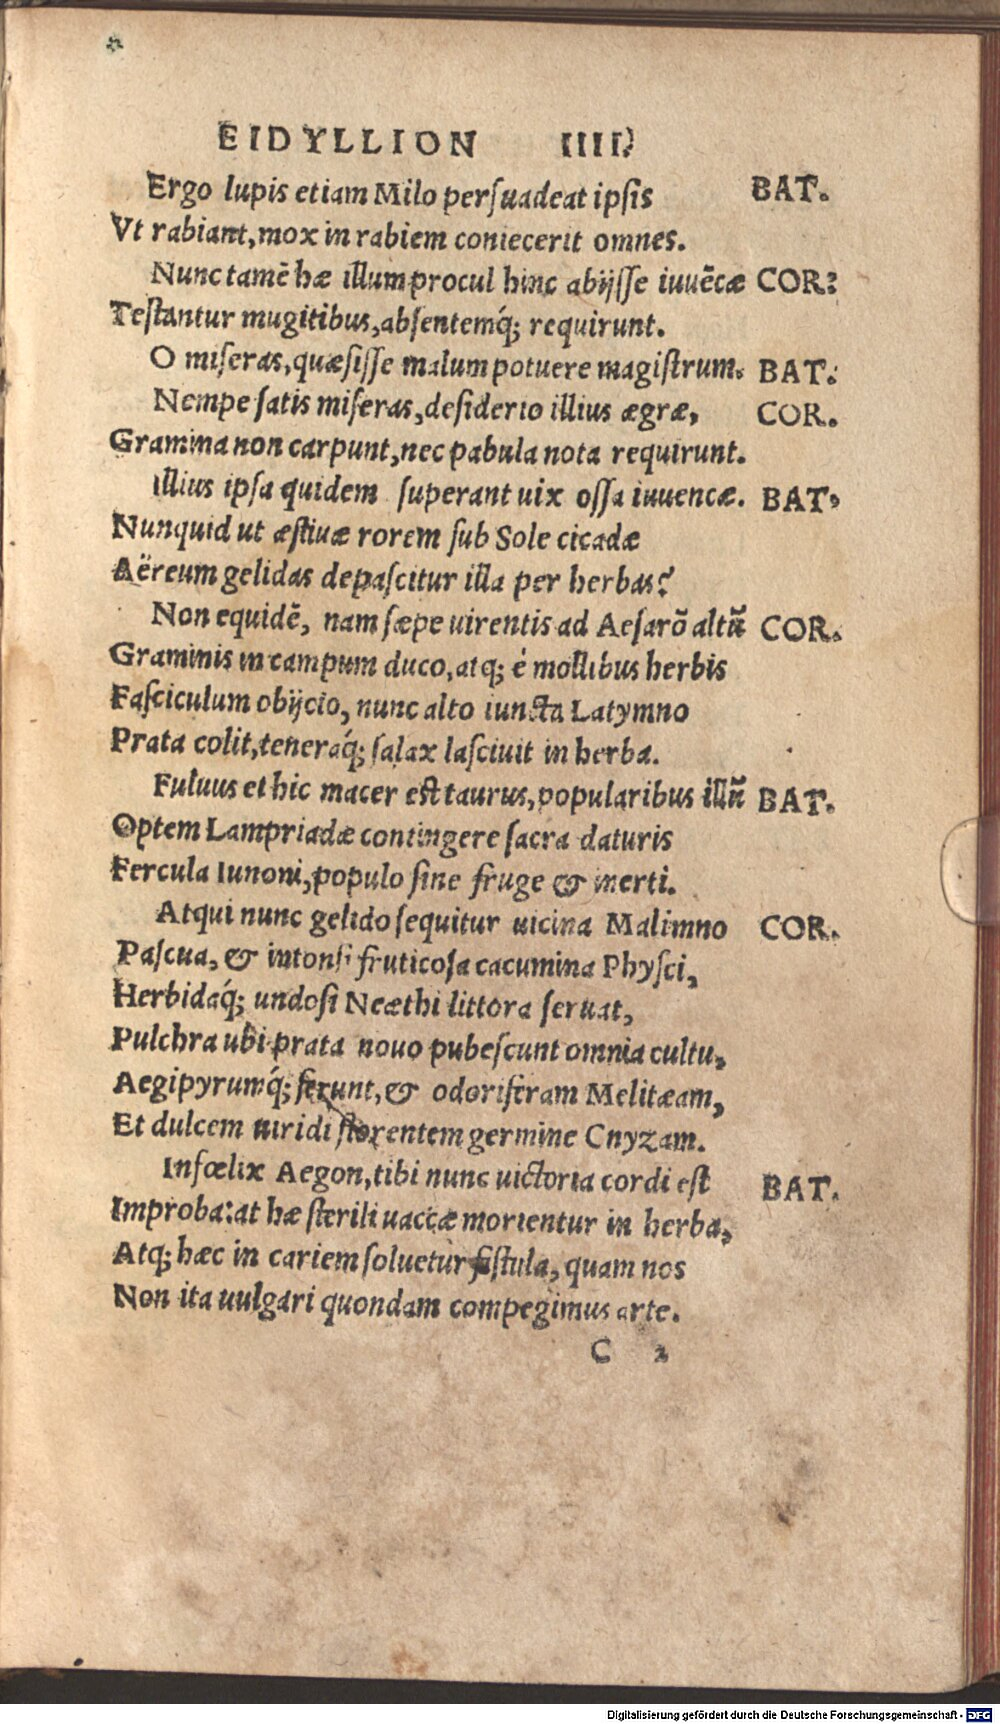 EIDYLLION IIII.
Ergo lupis etiam Milo persuadeat ipsis BAT.
Vt rabiant, mox in rabiem coniecerit omnes.
Nunc tamē hæ illum procul hinc abijsse iuuēcæ COR:
Testantur mugitibus, absentemq́; requirunt.
O miseras, quæsisse malum potuere magistrum. BAT.
Nempe satis miseras, desiderio illius ægræ, COR.
Gramina non carpunt, nec pabula nota requirunt.
Illius ipsa quidem superant uix ossa iuuencæ. BAT.
Nunquid ut æstiuæ rorem sub Sole cicadæ
Aëreum gelidas depascitur illa per herbas?
Non equidē, nam sæpe uirentis ad Aesarō altū COR.
Graminis in campum duco, atq; è mollibus herbis
Fasciculum obijcio, nunc alto iuncta Latymno
Prata colit, teneraq́; salax lasciuit in herba.
Fuluus et hic macer est taurus, popularibus illū BAT.
Optem Lampriadæ contingere sacra daturis
Fercula Iunoni, populo sine fruge & inerti.
Atqui nunc gelido sequitur uicina Malimno COR.
Pascua, & intonsi fruticosa cacumina Physci,
Herbidaq́; undosi Neæthi littora seruat,
Pulchra ubi prata nouo pubescunt omnia cultu,
Aegipyrumq́; ferunt, & odoriferam Melitæam,
Et dulcem uiridi florentem germine Cnyzam.
Infœlix Aegon, tibi nunc uictoria cordi est BAT.
Improba: at hæ sterili uaccæ morientur in herba,
Atq; hæc in cariem soluetur fistula, quam nos
Non ita uulgari quondam compegimus arte.
C 2
Digitalisierung gefördert durch die Deutsche Forschungsgemeinschaft - DFG